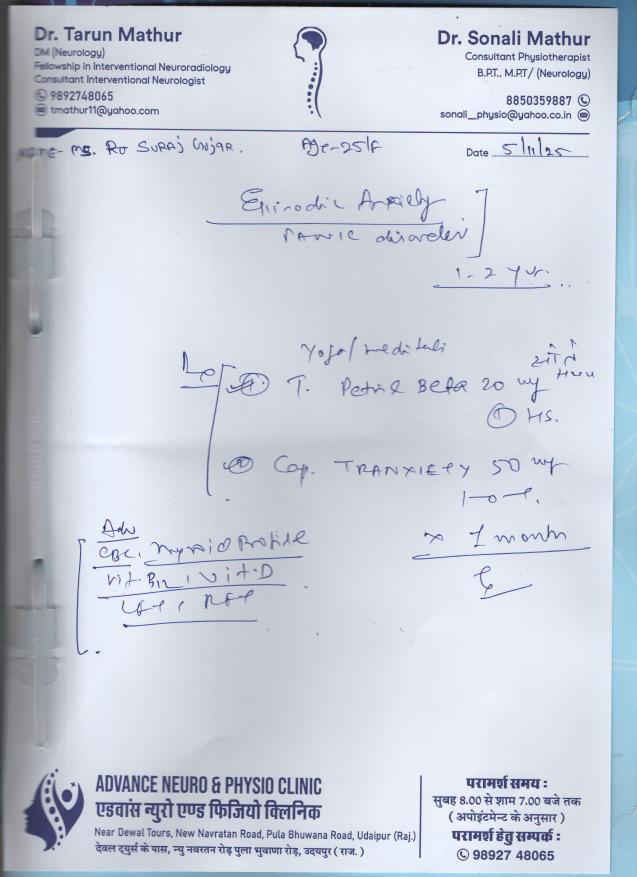 Dr. Tarun Mathur
DM (Neurology)
Fellowship in Interventional Neuroradiology
Consultant Interventional Neurologist
9892748065
tmathur11@yahoo.com
Dr. Sonali Mathur
Consultant Physiotherapist
B.P.T., M.P.T/ (Neurology)
8850359887
sonali_physio@yahoo.co.in
Ms. SURAJ Age-25/F Date 5/11/25
Episodic Anxiety
PANIC disorder
1-2 yr.
Yoga/
T. Beta 20 mg
1 HS.
Cap. TRANXIETY 50 mg
1-0-1.
x 1 month
Adv
CBC, Thyroid Profile
Vit B12, Vit.D
LFT, RFT
ADVANCE NEURO & PHYSIO CLINIC
एडवांस न्युरो एण्ड फिजियो क्लिनिक
Near Dewal Tours, New Navratan Road, Pula Bhuwana Road, Udaipur (Raj.)
देवल ट्युर्स के पास, न्यु नवरतन रोड़ पुला भुवाणा रोड़, उदयपुर ( राज. )
परामर्श समय :
सुबह 8.00 से शाम 7.00 बजे तक
( अपोइंटमेन्ट के अनुसार )
परामर्श हेतु सम्पर्क :
98927 48065